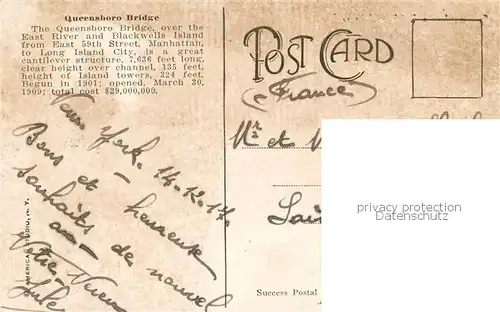 Queensboro Bridge
The Queensboro Bridge, over the
East River and Blackwells Island
from East 59th Street, Manhattan,
to Long Island City, is a great
cantilever structure, 7,636 feet long,
clear height over channel, 135 feet,
height of Island towers, 324 feet.
Begun in 1901; opened, March 30,
1909; total cost $29,000,000.
New York. 14-12-17.
Bons et heureux
souhaits de nouvel
an
Votre
Jules
POST CARD
(France)
Mr et M
privacy protection
Datenschutz
Success Postal